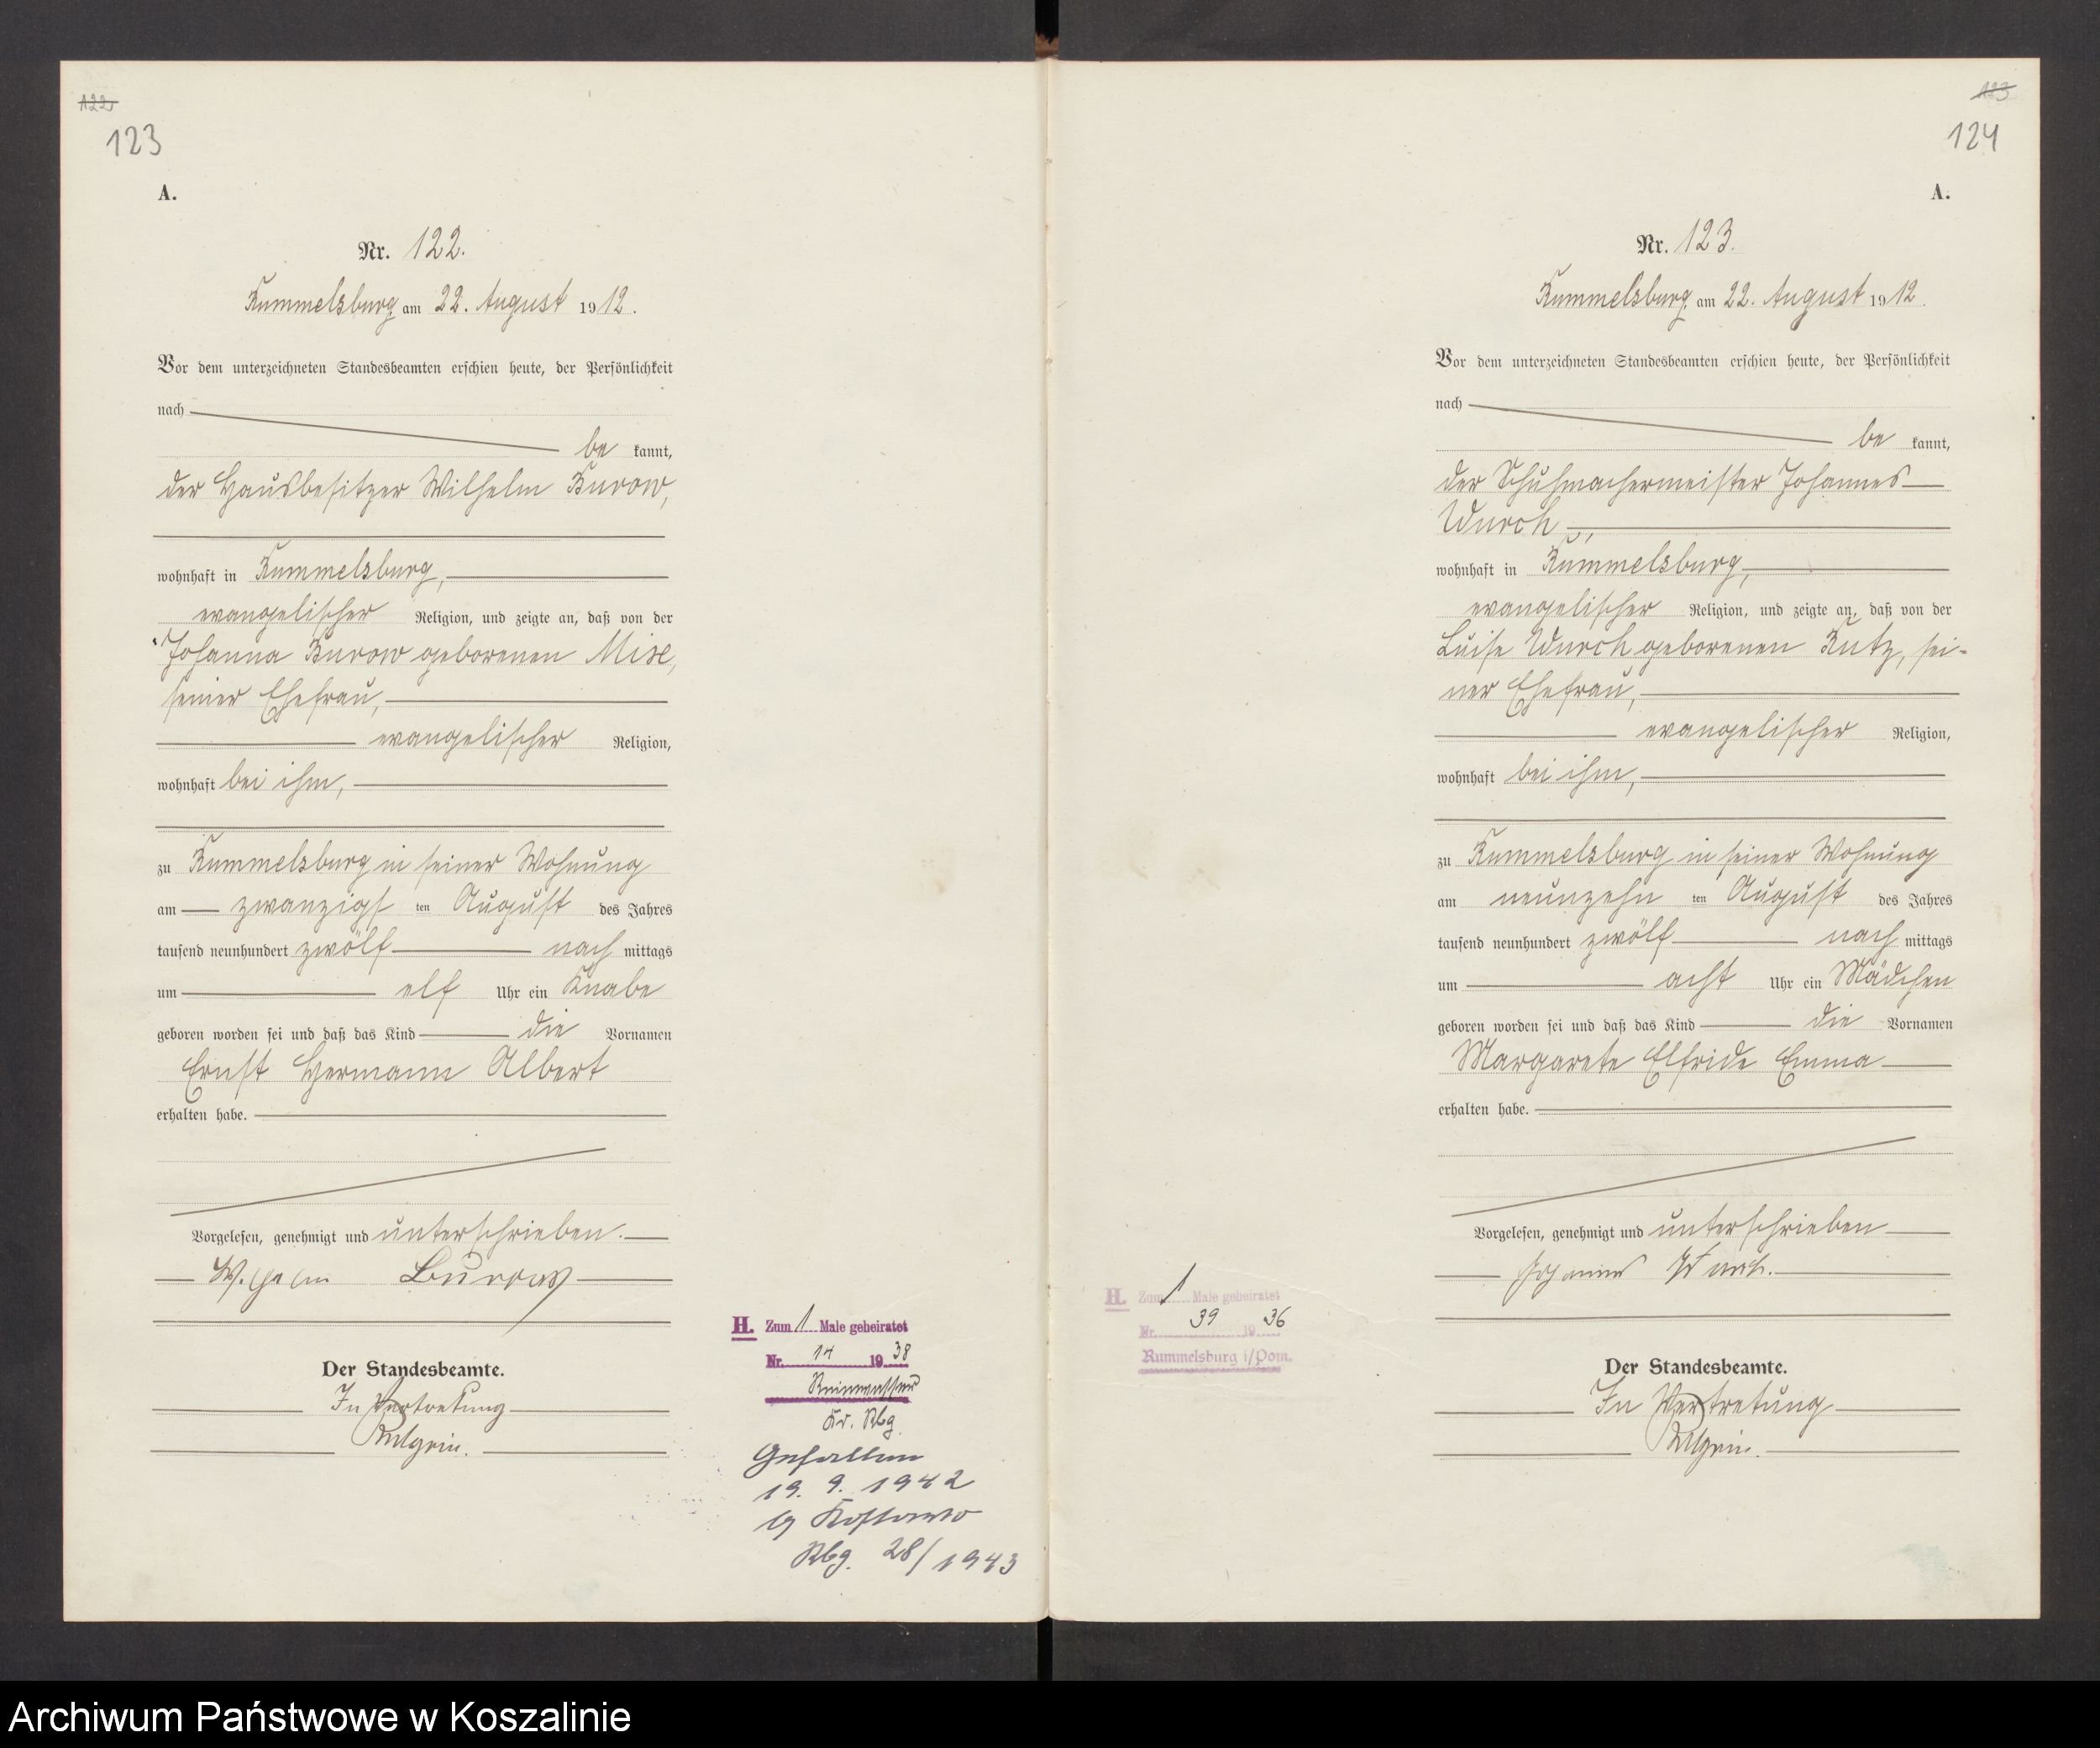 122
123
A.
Nr. 122.
Rummelsburg am 22. August 1912.
Vor dem unterzeichneten Standesbeamten erschien heute, der Persönlichkeit
nach
be kannt,
der Hausbesitzer Wilhelm Burow,
wohnhaft in Rummelsburg,
evangelischer Religion, und zeigte an, daß von der
Johanna Burow geborenen Mise,
seiner Ehefrau,
evangelischer Religion,
wohnhaft bei ihm,
zu Rummelsburg in seiner Wohnung
am zwanzigs ten August des Jahres
tausend neunhundert zwölf nach mittags
um elf Uhr ein Knabe
geboren worden sei und daß das Kind die Vornamen
Ernst Hermann Albert
erhalten habe.
Vorgelesen, genehmigt und unterschrieben.
Wilhelm Burow
Der Standesbeamte.
In Vertretung
H. Zum 1 Male geheiratet
Nr. 14 1938
Reinwasser
Kr. Rbg.
Gefallen
19. 9. 1942
Rbg. 28/1943
123
124
A.
Nr. 123.
Rummelsburg am 22. August 1912.
Vor dem unterzeichneten Standesbeamten erschien heute, der Persönlichkeit
nach
be kannt,
der Schuhmachermeister Johannes
Wurch,
wohnhaft in Rummelsburg,
evangelischer Religion, und zeigte an, daß von der
Luise Wurch geborenen Kutz, sei-
ner Ehefrau,
evangelischer Religion,
wohnhaft bei ihm,
zu Rummelsburg in seiner Wohnung
am neunzehn ten August des Jahres
tausend neunhundert zwölf nach mittags
um acht Uhr ein Mädchen
geboren worden sei und daß das Kind die Vornamen
Margarete Elfride Emma
erhalten habe.
Vorgelesen, genehmigt und unterschrieben
Johannes Wurch.
Der Standesbeamte.
In Vertretung
H. Zum 1 Male geheiratet
Nr. 39 1936
Rummelsburg i/Pom.
Archiwum Państwowe w Koszalinie